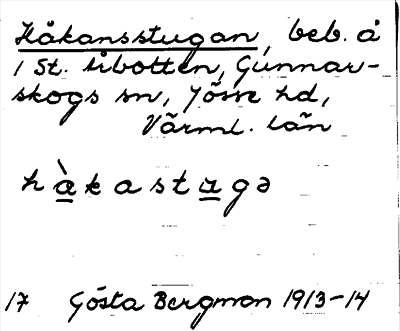 Håkansstugan, beb. å
1 St. Åbotten, Gunnar-
skogs sn, Jösse hd,
Värml. län
hà̲kasta̲gə
17 Gösta Bergman 1913-14